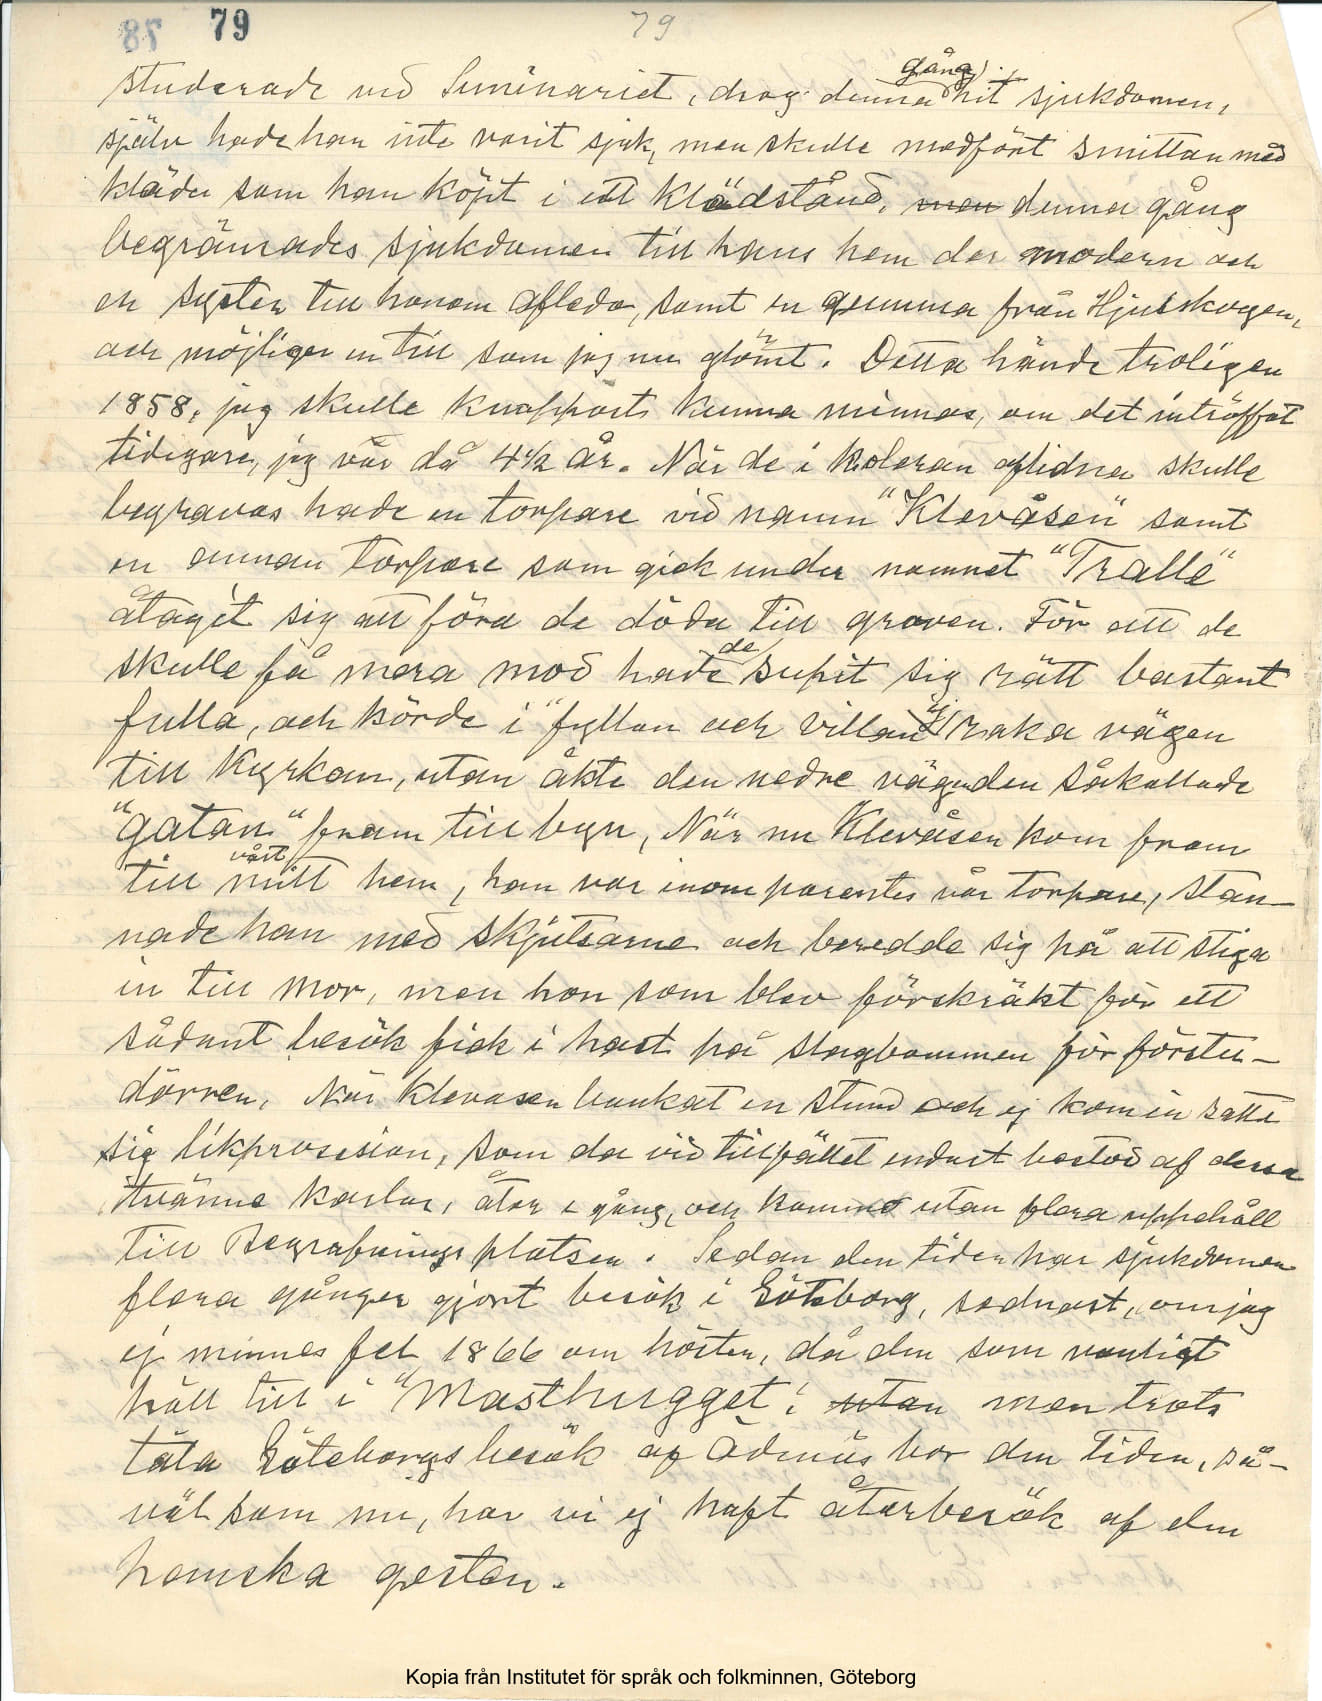 78 79 79
studerade vid Seminariet, drog denna gång hit sjukdomen,
själv hade han inte varit sjuk, men skulle medfört smittan med
kläder som han köpt i ett klädstånd, men denna gång
begränsades sjukdomen till hans hem der modern och
en syster till honom afledo, samt en gumma från Hjulskogen,
och möjligen en till som jag nu glömt. Detta hände troligen
1858, jag skulle knappast kunna minnas, om det inträffat
tidigare, jag var då 4½ år. När de i koleran aflidna skulle
begravas hade en torpare vid namn "Klevåsen" samt
en annan torpare som gick under namnet "Tralle"
åtagit sig att föra de döda till graven. För att de
skulle få mera mod hade de supit sig rätt bastant
fulla, och körde i "fyllan och villan" ej raka vägen
till Kyrkan, utan åkte den nedre vägen den såkallade
"gatan" fram till byn, När nu Klevåsen kom fram
till mitt vårt hem, han var inom parentes vår torpare, stan-
nade han med skjutsarne och beredde sig på att stiga
in till mor, men hon som blev förskräkt för ett
sådant besök fick i hast på slagbommen för förstu-
dörren, När Klevasen bankat en stund och ej kom in satte
sig likprosesion, som da vid tillfället endast bestod af dessa
tvänne karlar, åter i gång, och kommo utan flera uppehåll
till Begrafnings platsen. Sedan den tiden har sjukdomen
flera gånger gjort besök i Göteborg, sednast, om jag
ej minnes fel 1866 om hösten, då den som vanligt
höll till i "Masthugget", utan men trots
täta Göteborgs besök af Ödmüs bor den tiden, så-
väl som nu, har vi ej haft återbesök af den
hemska gesten.
Kopia från Institutet för språk och folkminnen, Göteborg